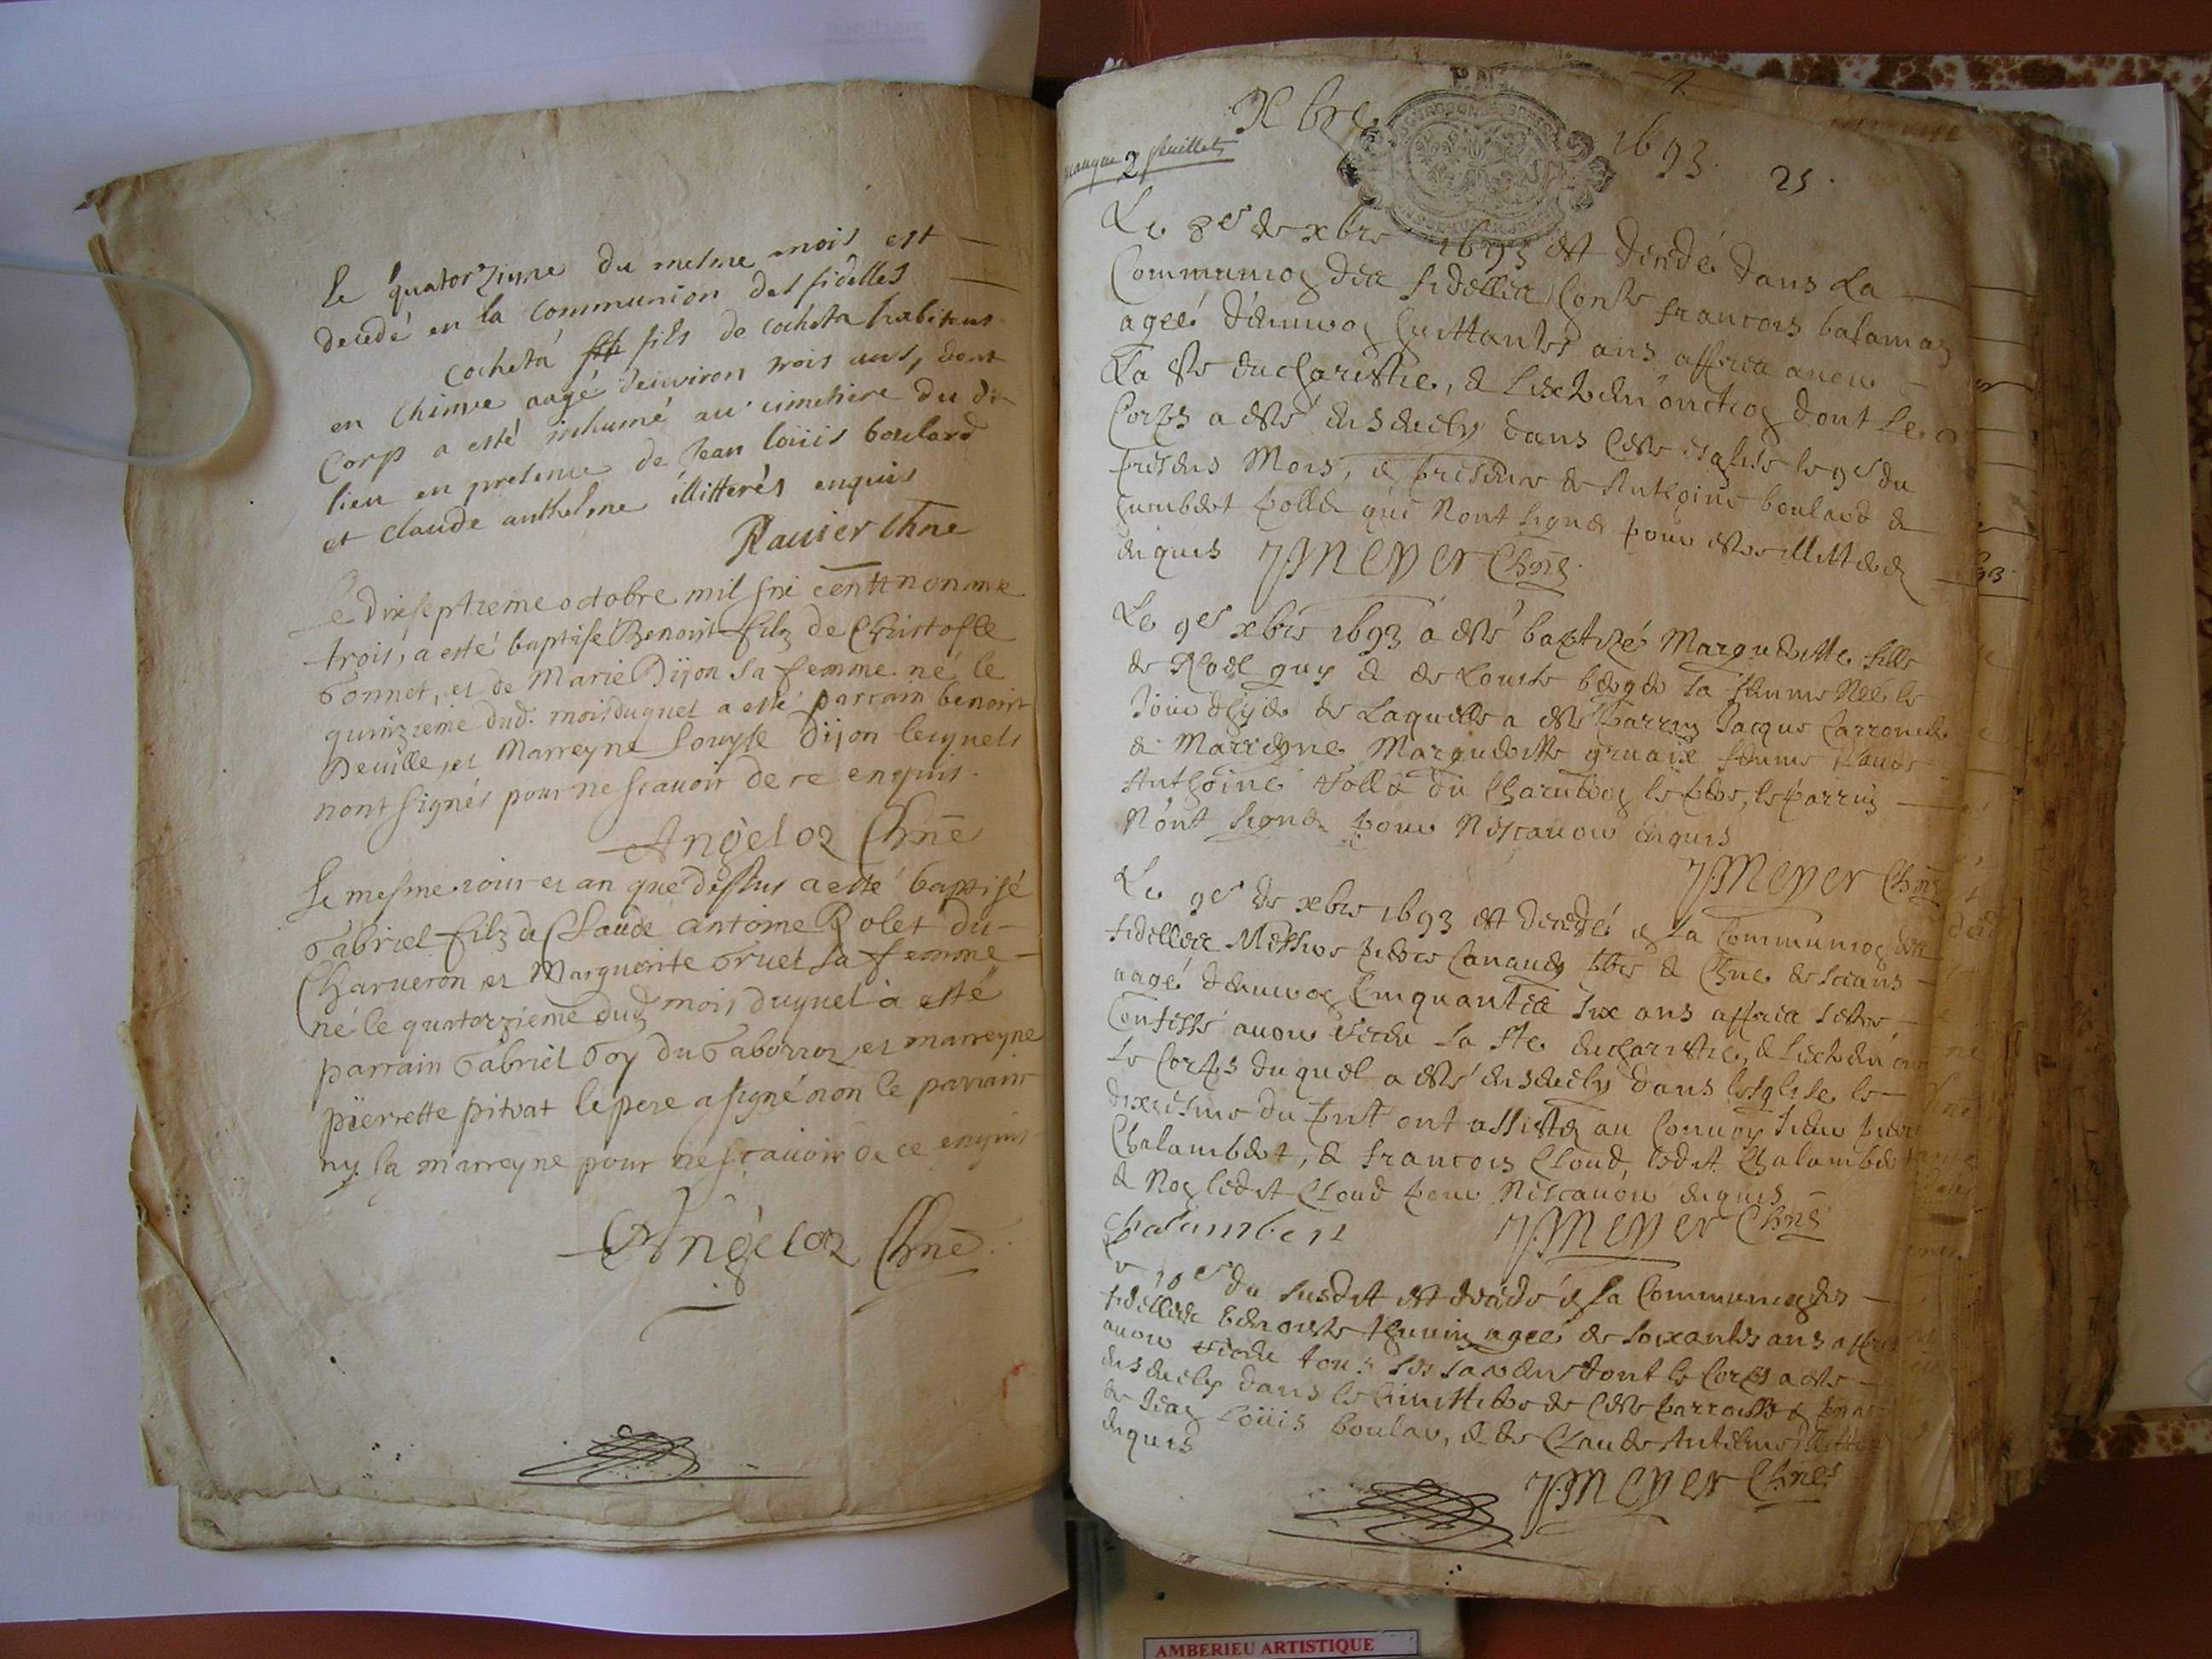 le quatorzieme du mesme mois est
decedé en la communion des fidelles
cocheta fils de cocheta habitans
en Chimve aagé denviron trois ans, dont
Corp a esté inhumé au cimetiere du dt
lieu en presence de Jean loüis boulard
et claude anthelme illitterés enquis
Rauier Chne
Le dixseptieme octobre mil six centz nonante
trois, a esté baptisé Benoist filz de Christofle
Bonnet, et de Marie Dijon sa femme né le
quinzieme dud. mois duquel a esté parrain benoist
Deville, et Marreyne Louyse Dijon lesquels
nont signés pour ne scavoir de ce enquis.
Angeloz Chne
Le mesme iour et an que dessus a esté baptisé
Gabriel filz de Claude antoine Rolet du
Charveron et Marguerite Gruet sa femme
né le quatorzieme dud mois duquel à esté
parrain Gabriel Goy du Gaborroz, et marreyne
pïerrette pitvat le pere a signé non le parrain
ny la marreyne pour ne scavoir de ce enquis
Angeloz Chne
Xbre 1693. 25.
manque 2 feuillets
Le 8e de xbre 1693 est decedé dans la
Communion des fidelles françois
ageé denviron ans apres avoir
La Ste eucharistie, & lextrem onction dont le
Corps a esté ensevely dans cette esglise le 9e du
presens Mois, en presence de Anthoine boulard &
humbert Rollet qui n'ont signé pour estre illitteré
enquis JMeyer Chne
Le 9e xbre 1693 a esté baptizé Margueritte fille
de Noel guy & de Louise sa femme Neé le
Jour d'hyer de Laquelle a esté parrin Jacque
& Marreyne Margueritte femme
Anthoine Rollet du Charveron le pere, le parrin
N'ont signé pour Ne scavoir enquis
JMeyer Chne
Le 9e de xbre 1693 est decedé en la Communion des
fidelles Messire pierre pbre & Chne de ceans
aagé denviron Cinquante six ans apres sestre
Confessé avoir receu la Ste eucharistie, & lextrem
le Corps duquel a esté ensevely dans lesglise le
dixiesme du pnt ont assisté au Convoy sieur pierre
Chalambert, & francois Cloud, ledit Chalambert
& Non ledit Cloud pour Ne scavoir enquis
Chalambert JMeyer Chne
Le 10e du susdit est decedé en la Communion des
fidelles benoiste ageé de soixante ans apres
avoir receu tous ses sacremens dont le Corps a esté
ensevely dans le Cimettiere de cette parroisse en
de Jean Loüis boular, & de Claude Antelme
enquis
JMeyer Chne
AMBERIEU ARTISTIQUE